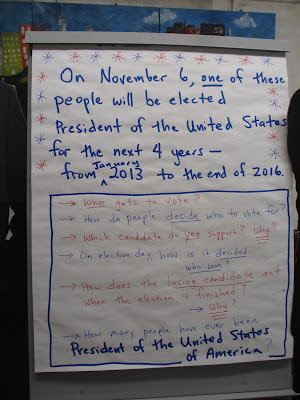 On November 6, one of these
people will be elected
President of the United States
for the next 4 years —
January
from 2013 to the end of 2016.
→ Who gets to vote?
→ How do people decide who to vote for?
→ Which candidate do you support? Why?
→ On election day, how is it decided
who won?
→ How does the losing candidate act
when the election is finished?
→ Why?
→ How many people have ever been
President of the United States
of America?